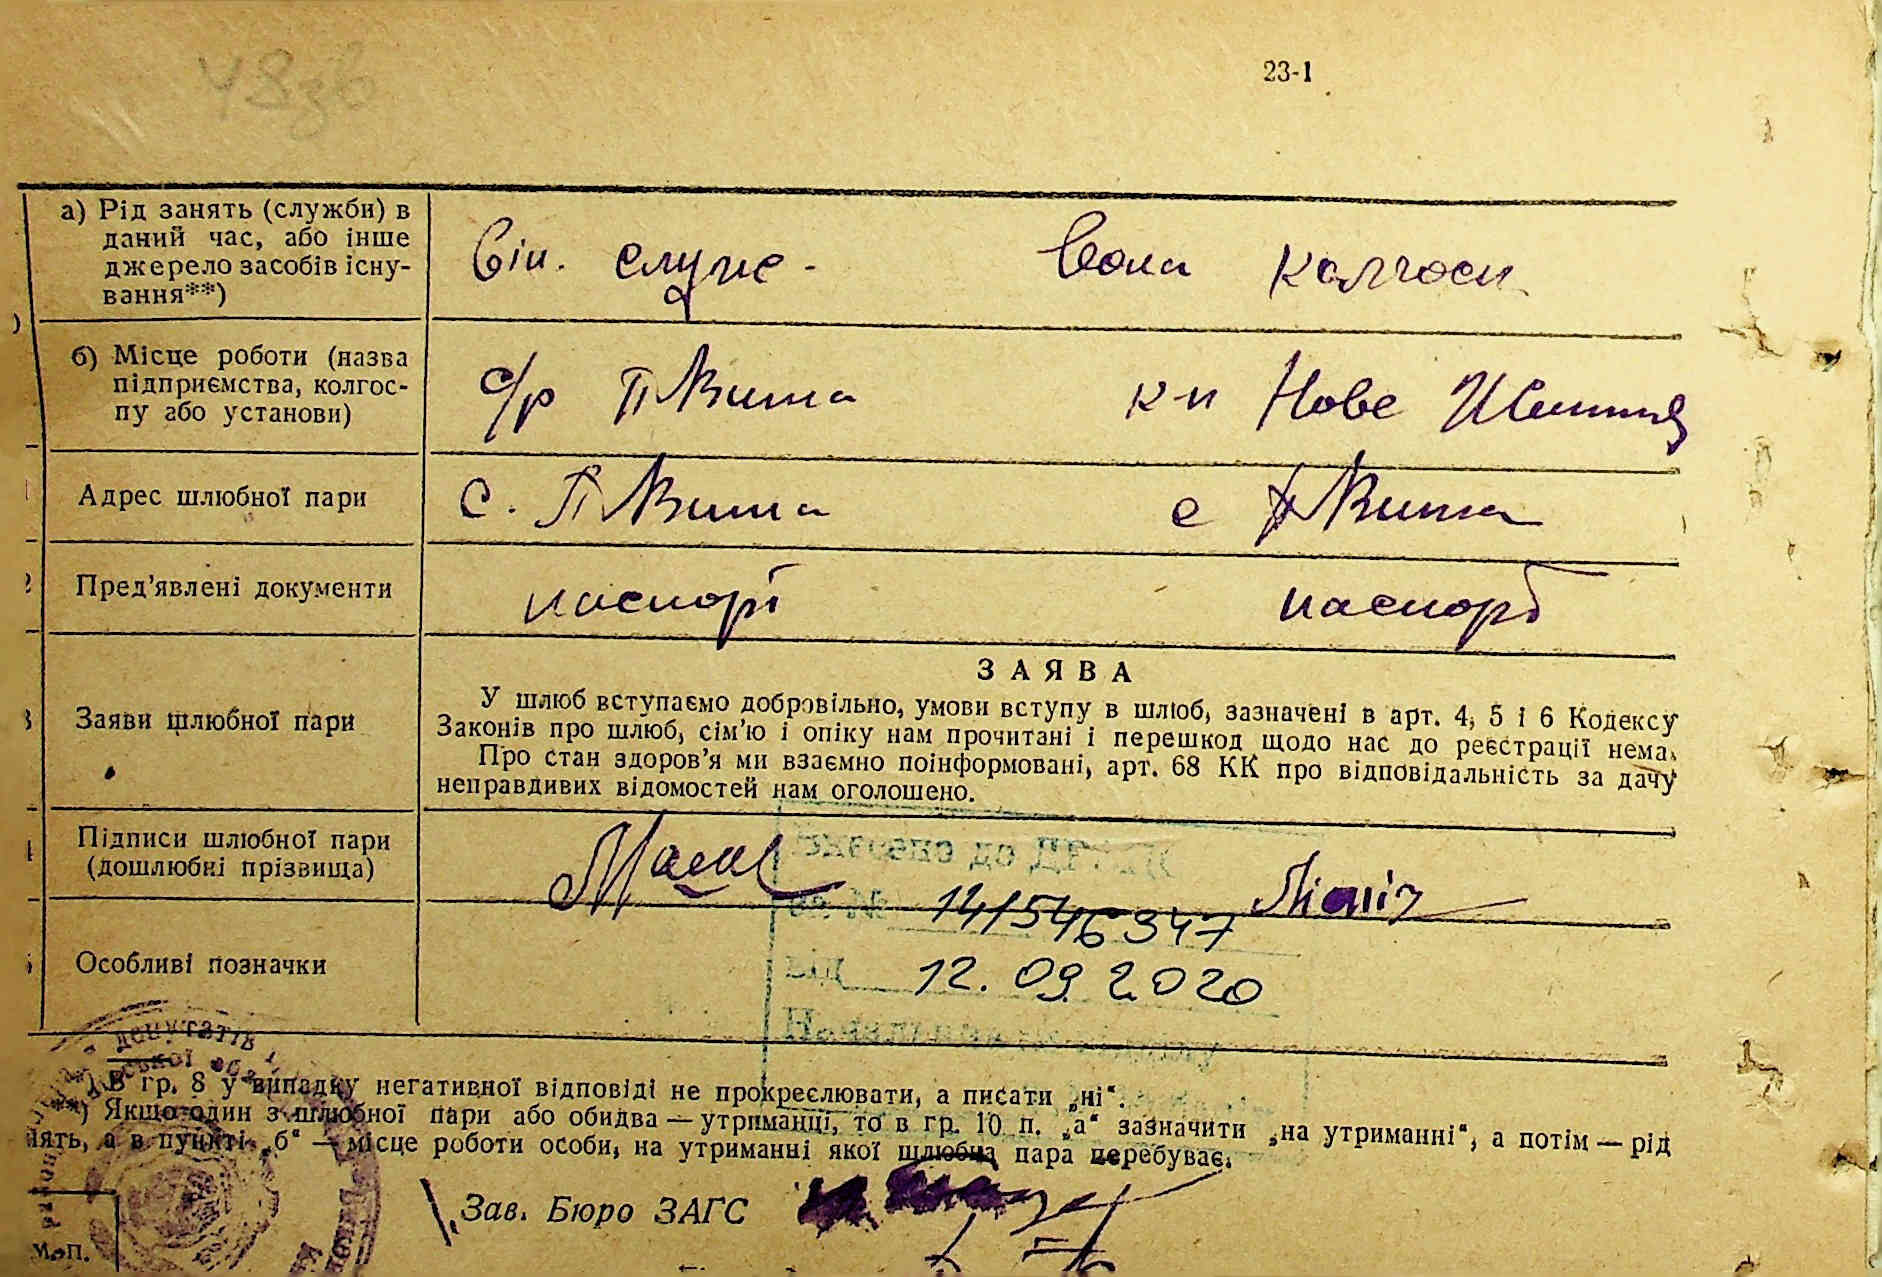 23-1
а) Рід занять (служби) в
даний час, або інше
джерело засобів існу-
вання**)
Він. служ - Вона колгосп
б) Місце роботи (назва
підприємства, колгос-
пу або установи)
с/р П Виша к-п Нове Життя
Адрес шлюбної пари
с. П Виша с П Виша
Пред’явлені документи
паспорт паспорт
Заяви шлюбної пари
ЗАЯВА
У шлюб вступаємо добровільно, умови вступу в шлюб, зазначені в арт. 4, 5 і 6 Кодексу
Законів про шлюб, сім’ю і опіку нам прочитані і перешкод щодо нас до реєстрації нема.
Про стан здоров’я ми взаємно поінформовані, арт. 68 КК про відповідальність за дачу
неправдивих відомостей нам оголошено.
Підписи шлюбної пари
(дошлюбні прізвища)
14/546347
Особливі позначки
від 12.09.2020
депутатів
*) В гр. 8 у випадку негативної відповіді не прокреслювати, а писати „ні“.
**) Якщо один з шлюбної пари або обидва — утриманці, то в гр. 10 п. „а“ зазначити „на утриманні“, а потім — рід
нять, а в пункті „б“ — місце роботи особи, на утриманні якої шлюбна пара перебуває.
Зав. Бюро ЗАГС
М. П.